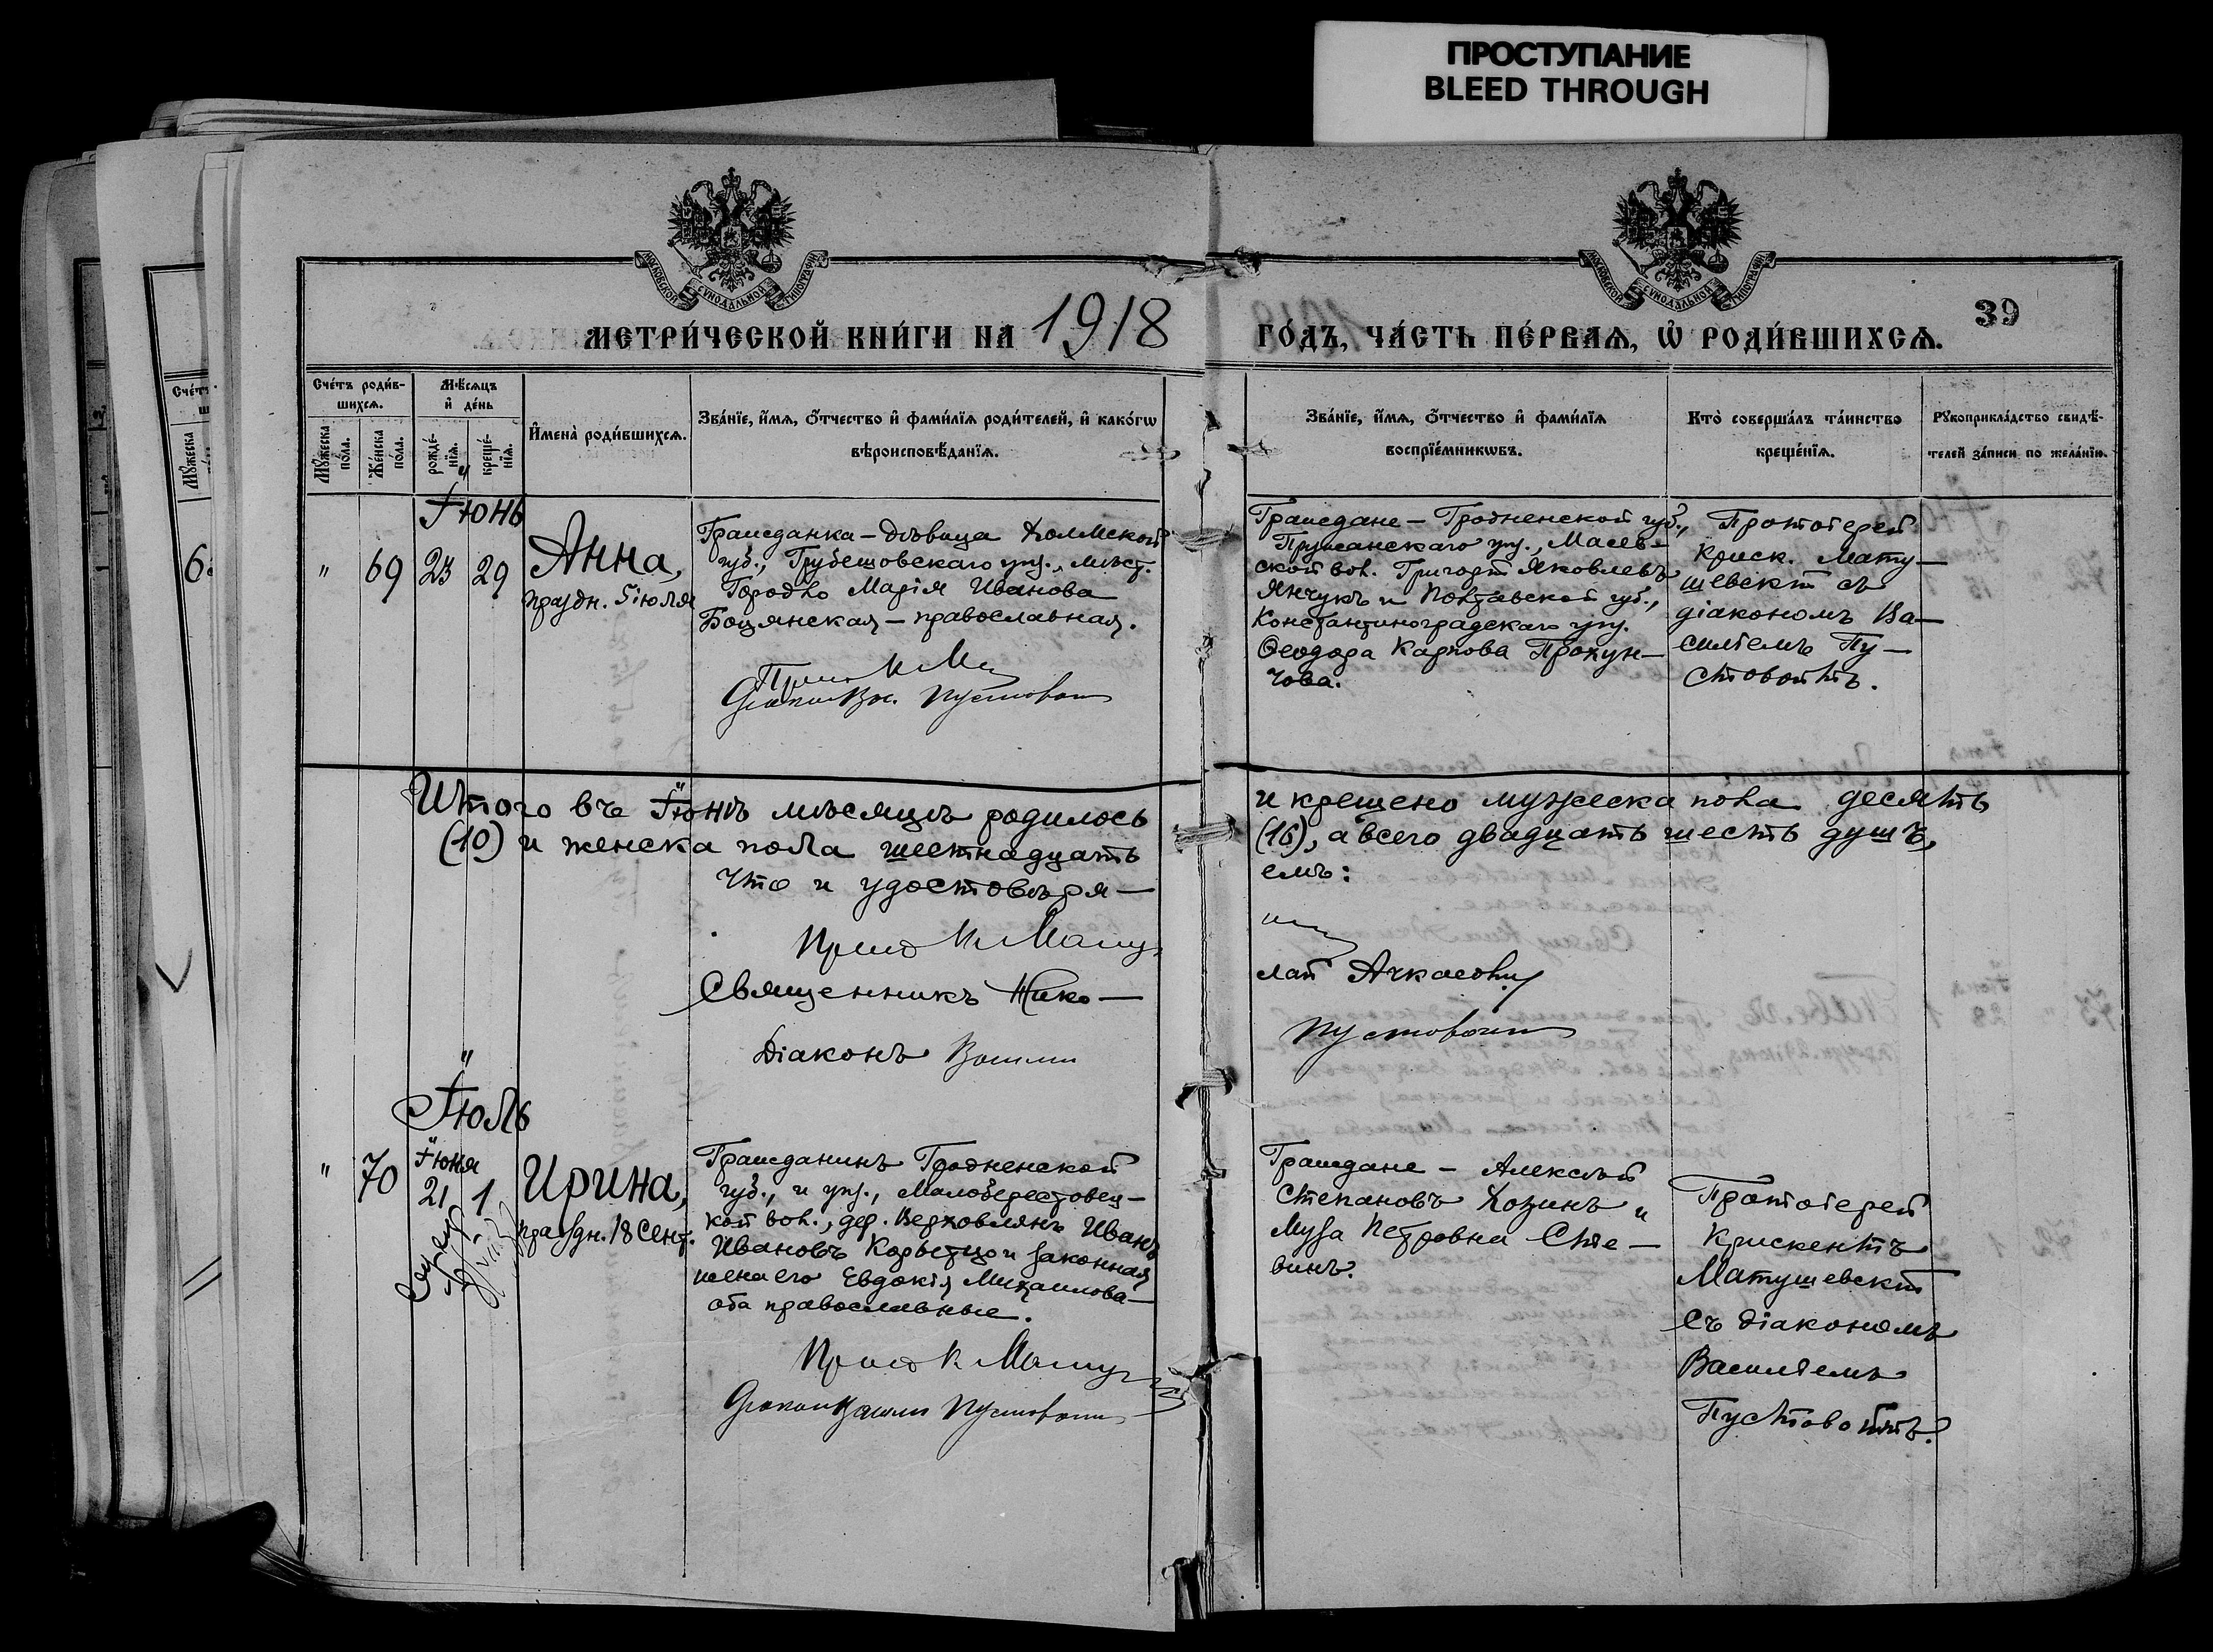 ПРОСТУПАНИЕ
BLEED THROUGH
МОСКОВСКОЙ СѴНОДАЛЬНОЙ ТИПОГРАФІИ
МОСКОВСКОЙ СѴНОДАЛЬНОЙ ТИПОГРАФІИ
39
МЕТРИ́ЧЕСКОЙ КНИ́ГИ НА 1918
ГО́ДЪ, ЧА́СТЬ ПЕ́РВАѦ, Ѡ҆ РОДИ́ВШИХСѦ.
Сче́тъ роди́в-
шихсѧ.
Мꙋ́жеска по́ла.
Же́нска по́ла.
Мѣ́сѧцъ
и҆ де́нь
рожде́-
нїѧ.
креще́-
нїѧ.
И҆мена̀ роди́вшихсѧ.
Зва́нїе, и҆́мѧ, ѻ҆́тчество и҆ фами́лїѧ роди́телей, и҆ како́гѡ
вѣроисповѣ́данїѧ.
Зва́нїе, и҆́мѧ, ѻ҆́тчество и҆ фами́лїѧ
воспрїе́мникѡвъ.
Кто̀ соверша́лъ та́инство
креще́нїѧ.
Рꙋкоприкла́дство свидѣ́-
телей за́писи по жела́нїю.
Іюнь
" 69 23 29
Анна,
праздн. 5 іюля
Гражданка – дѣвица Холмской
губ., Грубешовскаго уѣз., мѣст.
Городло Марія Иванова
Боцянская – православная.
Діаконъ Вас. Пустовой
Граждане – Гродненской губ.,
Пружанскаго уѣз., Малеч-
ской вол. Григорій Яковлевъ
Янчукъ и Полтавской губ.,
Константиноградскаго уѣз.
Ѳеодора Карпова
Протоіерей
Криск. Мату-
шевскій съ
діакономъ Ва-
силіемъ Пу-
стовойтъ.
Итого въ Іюнѣ мѣсяцѣ родилось
и крещено мужеска пола десять
(10) и женска пола шестнадцать
(16), а всего двадцать шесть душъ,
что и удостовѣря-
емъ:
Прот К Мату
Священникъ Нико-
лай
Діаконъ Васили
Пустовойт
Іюль
" 70 Іюня 21 1
Ирина,
праздн. 18 Сент.
Гражданинъ Гродненской
губ., и уѣз., Малоберестовец-
кой вол., дер. Верховлянъ Иванъ
Ивановъ и законная
жена его Евдокія Михаилова –
оба православные.
Прот К Мату
Діаконъ Васили Пустовойт
Граждане – Алексѣй
Степановъ Хозинъ и
Муза Петровна
Протоіерей
Крискентъ
Матушевскій
съ діакономъ
Василіемъ
Пустовойтъ.